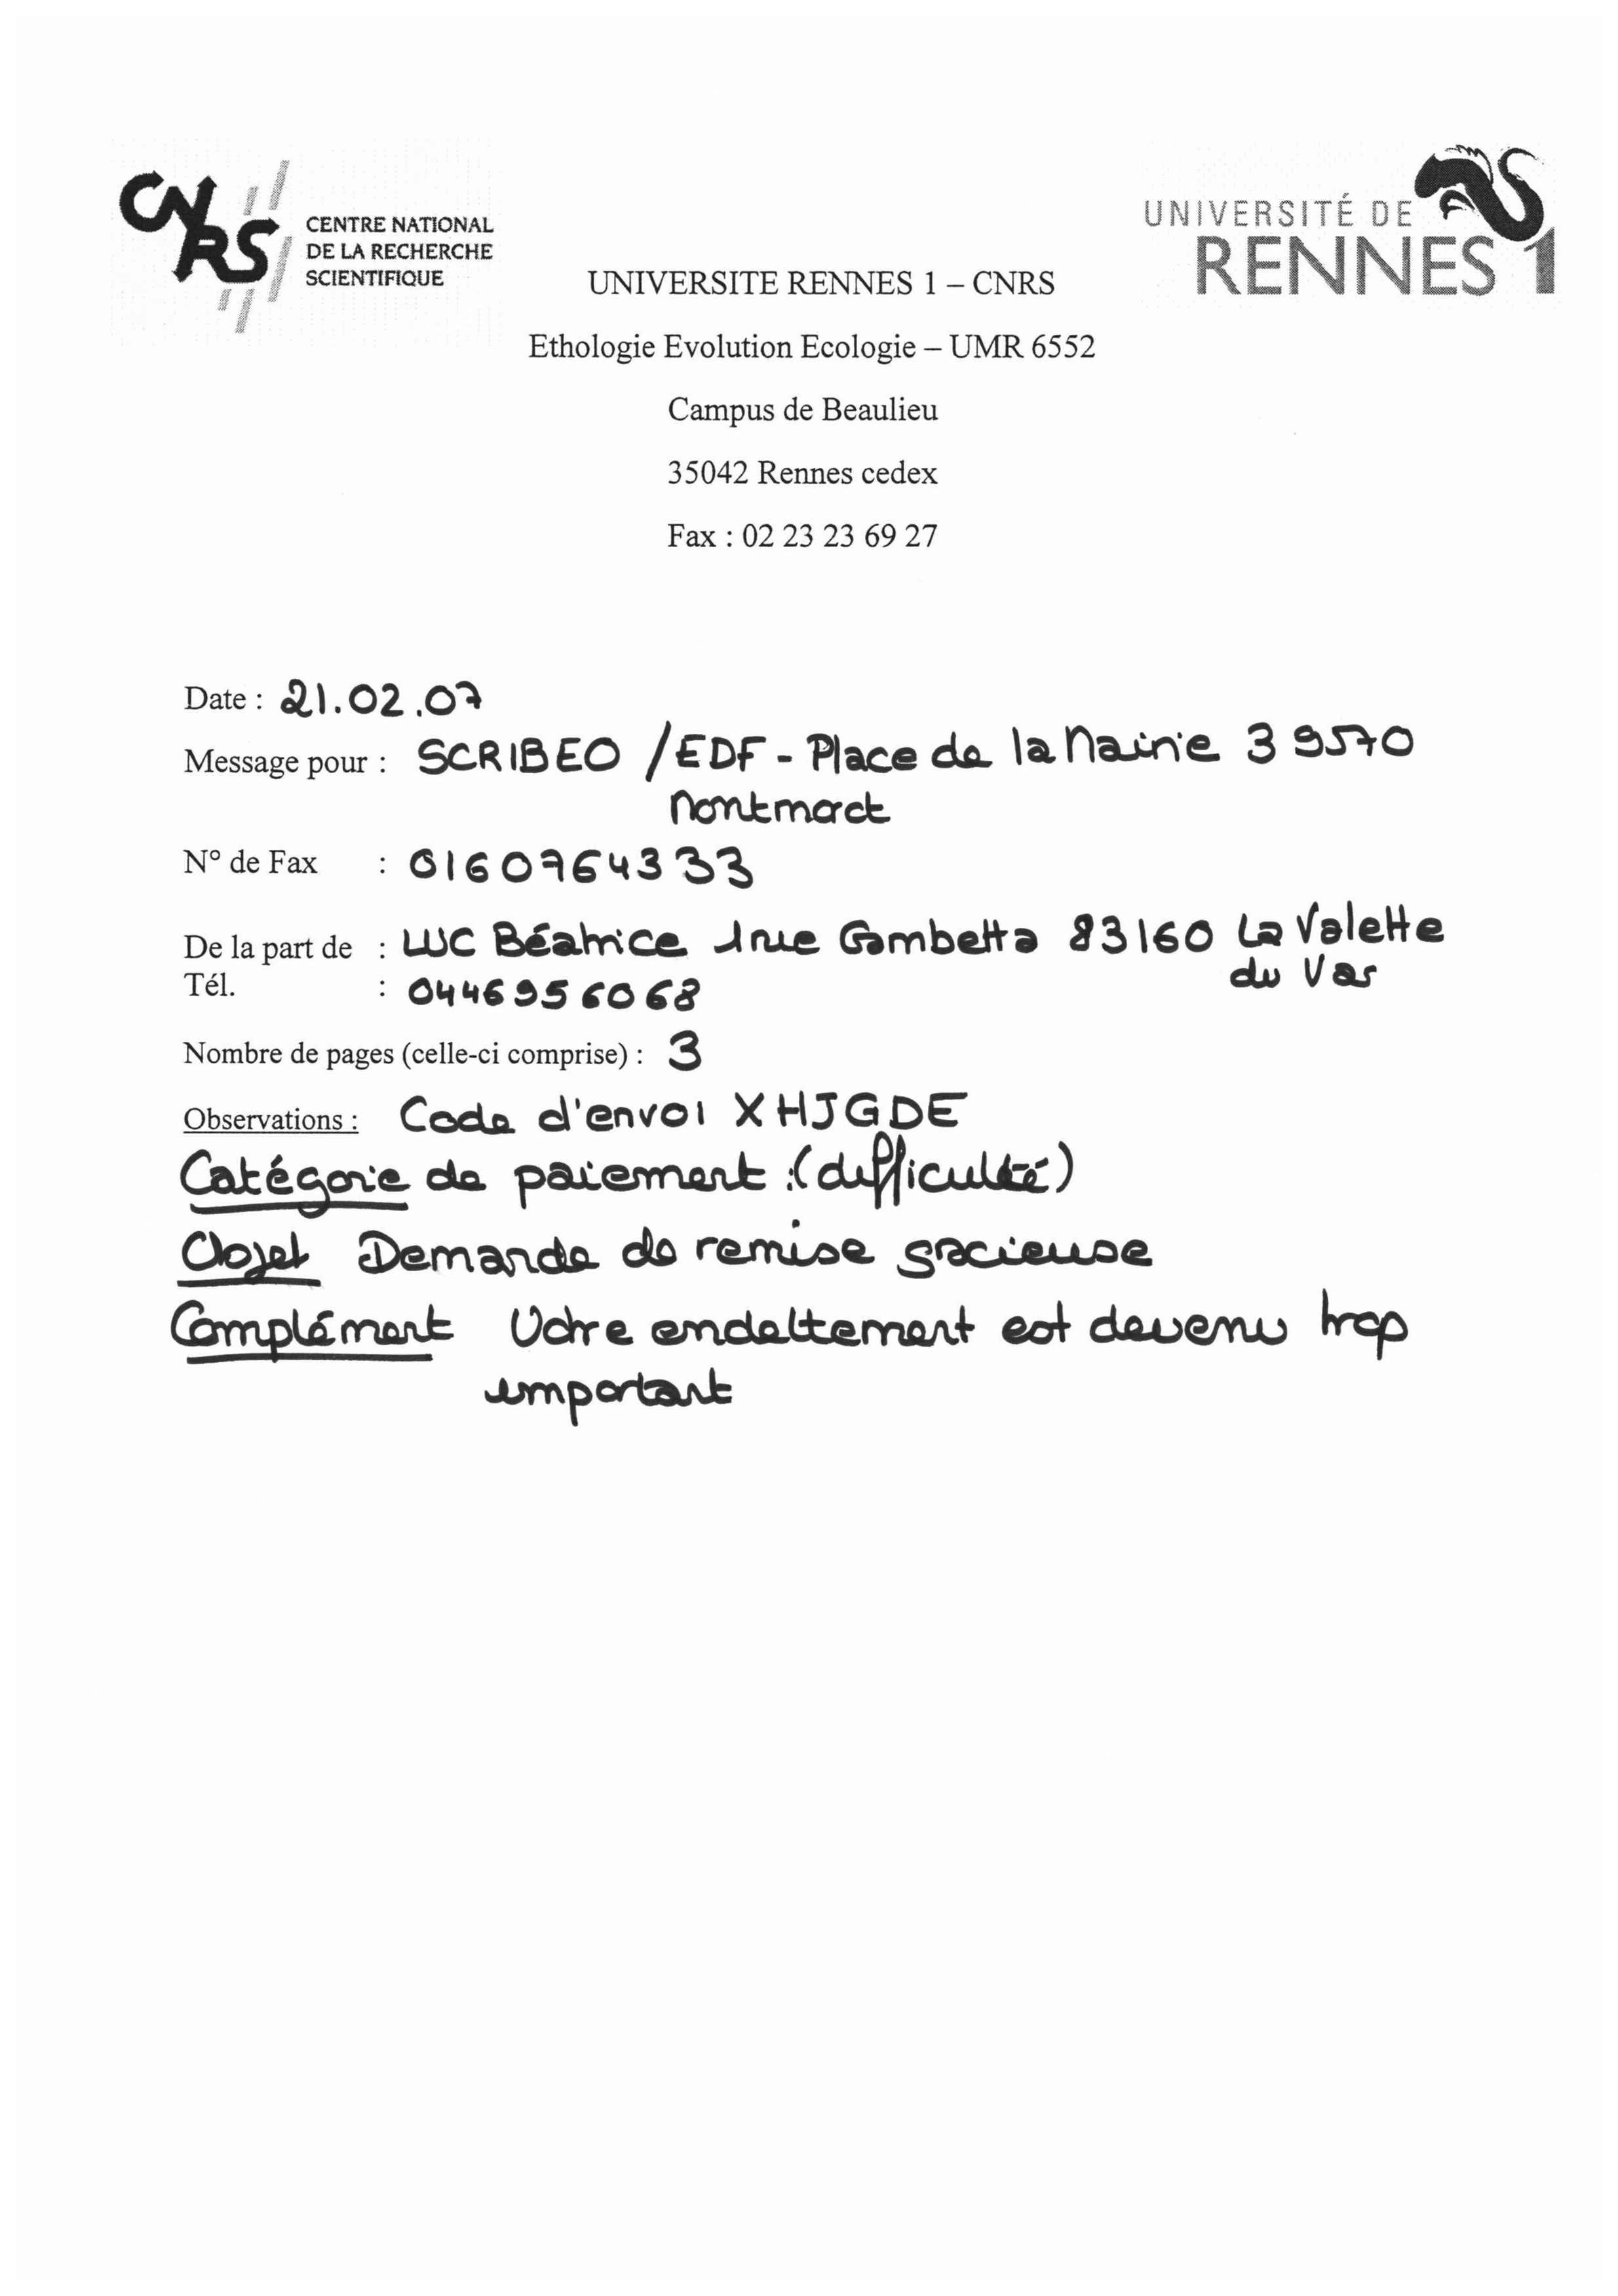 CNRS
CENTRE NATIONAL
DE LA RECHERCHE
SCIENTIFIQUE
UNIVERSITÉ DE
RENNES 1
UNIVERSITE RENNES 1 – CNRS
Ethologie Evolution Ecologie – UMR 6552
Campus de Beaulieu
35042 Rennes cedex
Fax : 02 23 23 69 27
Date : 21.02.07
Message pour : SCRIBEO / EDF - Place de la Mairie 39570
Montmorot
N° de Fax : 0160764333
De la part de : LUC Béatrice 1 rue Gambetta 83160 La Valette
du Var
Tél. : 0446956068
Nombre de pages (celle-ci comprise) : 3
Observations : Code d'envoi XHJGDE
Catégorie de paiement : (difficulté)
Objet Demande de remise gracieuse
Complément Votre endettement est devenu trop
important